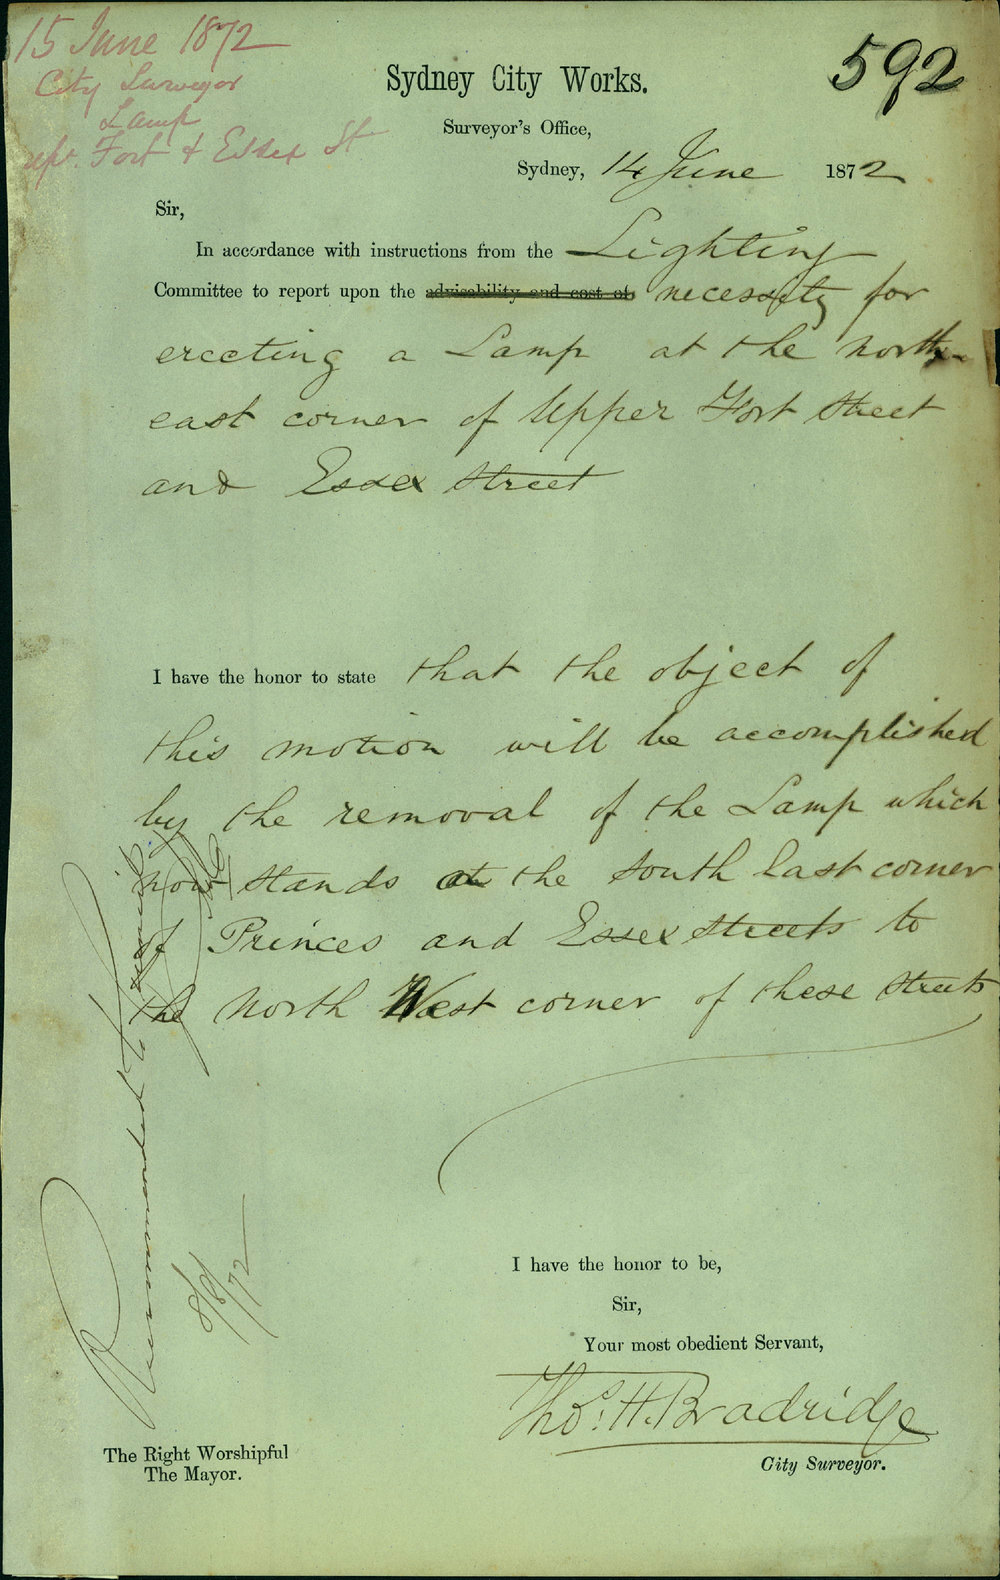 15 June 1872
City Surveyor
Lamp
upr. Fort & Essex St
592
Sydney City Works.
Surveyor's Office,
Sydney, 14 June 1872
Sir,
In accordance with instructions from the Lighting
Committee to report upon the advisability and cost of necessity for
erecting a Lamp at the north
east corner of Upper Fort Street
and Essex Street
I have the honor to state that the object of
this motion will be accomplished
by the removal of the Lamp which
now stands at the South East corner
of Princes and Essex Streets to
the North West corner of these Streets
Recommended to
8/8/72
I have the honor to be,
Sir,
Your most obedient Servant,
Thos. H. Bradridge
City Surveyor.
The Right Worshipful
The Mayor.